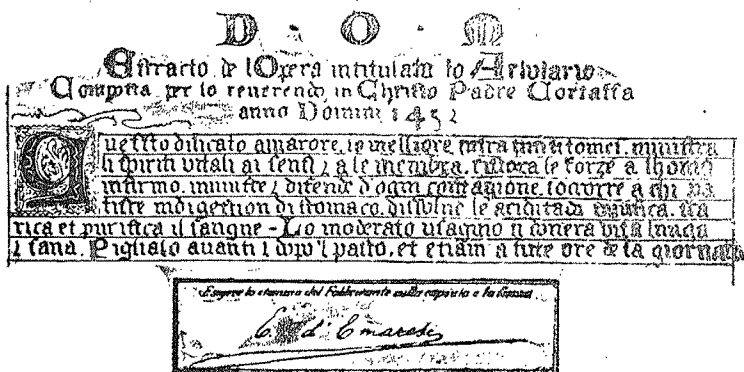 D · O · M
Estracto de l'Opera intitulata lo Arbolario
Composta per lo reverendo in Christo Padre Cortassa
anno Domini 1452
Questto dilicato amarore, lo megliore intra tutti tomei. ministra
li spiriti vitali ai sensi, a le membra, ristora le forze a lhomo
infirmo.inunite, difende d'ogni contagione. socorre a chi pa
tisce indigestion di stomaco. dissolve le aciditadi
rica et purifica il sangue - Lo moderato usagino ti donera vita lnaga
, sana. Piglialo avanti, dopo 'l pasto, et etiam a tute ore de la giornata
Esigere lo stemma del Fabbricante sulla capsula e la firma